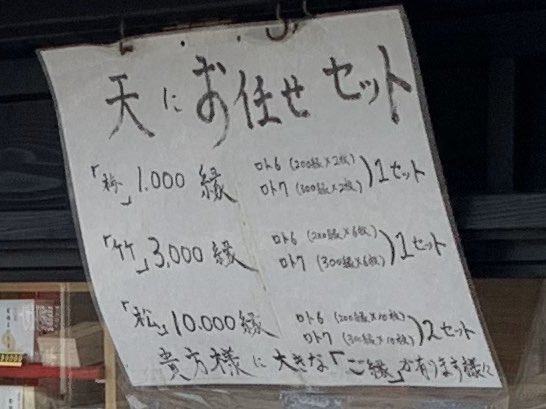 天にお任せセット
「梅」1,000縁 ロト6 (200縁×2枚) ロト7 (300縁×2枚) ) 1セット
「竹」3,000縁 ロト6 (200縁×6枚) ロト7 (300縁×6枚) ) 1セット
「松」10.000縁 ロト6 (200縁×10枚) ロト7 (300縁×10枚) ) 2セット
貴方様に大きな「ご縁」が有ります様に